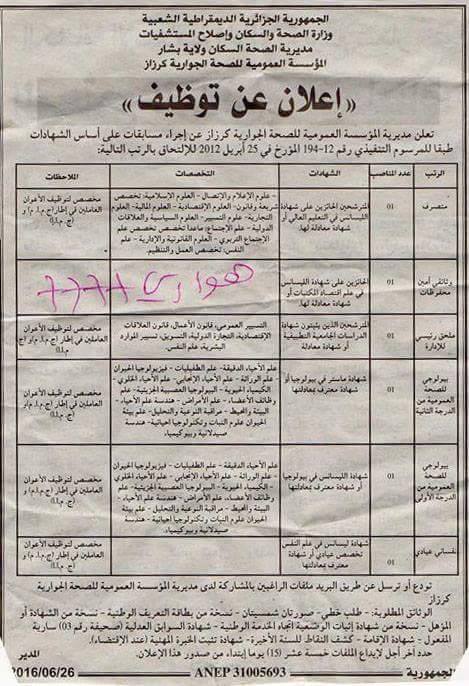 الجمهورية الجزائرية الديمقراطية الشعبية
وزارة الصحة والسكان وإصلاح المستشفيات
مديرية الصحة السكان ولاية بشار
المؤسسة العمومية للصحة الجوارية كرزاز
«إعلان عن توظيف»
تعلن مديرية المؤسسة العمومية للصحة الجوارية كرزاز عن إجراء مسابقات على أساس الشهادات
طبقا للمرسوم التنفيذي رقم 12-194 المؤرخ في 25 أبريل 2012 للإلتحاق بالرتب التالية:
الرتب
عدد المناصب
الشهادات
التخصصات
الملاحظات
متصرف
01
المترشحين الحائزين على شهادة
الليسانس في التعليم العالي أو
شهادة معادلة لها.
- علوم الإعلام والإتصال - العلوم الإسلامية: تخصص
شريعة وقانون - العلوم الإقتصادية - العلوم المالية - العلوم
التجارية - علوم التسيير - العلوم السياسية والعلاقات
الدولية - علم الإجتماع: ماعدا تخصص تخصص علم
الإجتماع التربوي - العلوم القانونية والإدارية - علم
النفس: تخصص العمل والتنظيم.
مخصص لتوظيف الأعوان
العاملين في إطار (ج.م.إ.م) و
(ج.م.إ)
وثائقي أمين
محفوظات
01
الحائزين على شهادة الليسانس
في علم اقتصاد المكتبات أو
شهادة معادلة لها.
هواري
ملحق رئيسي
للإدارة
01
المترشحين الذين يثبتون شهادة
الدراسات الجامعية التطبيقية
أو شهادة معادلة
التسيير العمومي، قانون الأعمال، قانون العلاقات
الإقتصادية، التجارة الدولية، التسويق، تسيير الموارد
البشرية، علم النفس.
مخصص لتوظيف الأعوان
العاملين في إطار (ج.م.إ.م) و (ج.
م.إ)
بيولوجي
للصحة
العمومية من
الدرجة الثانية
01
شهادة ماستر في بيولوجيا أو
شهادة معترف بمعادلتها
علم الأحياء الدقيقة - علم الطفيليات - فيزيولوجيا الحيوان
- علم الوراثة - علم الأحياء الإنجابي - علم الأحياء الخلوي
- الكيمياء الحيوية - البيولوجيا العصبية الجزيئية - علم
وظائف الأعضاء - علم الأمراض - هندسة علم الأحياء -
البيئة والمحيط - مراقبة النوعية والتحليل - علم بيئة
الحيوان علوم النبات وتكنولوجيا إحيائية - هندسة
صيدلانية وبيوكيمياء
مخصص لتوظيف الأعوان
العاملين في إطار (ج.م.إ.م) و (ج.
م.إ)
بيولوجي
للصحة
العمومية من
الدرجة الأولى
01
شهادة الليسانس في بيولوجيا
أو شهادة معترف بمعادلتها
علم الأحياء الدقيقة - علم الطفيليات - فيزيولوجيا الحيوان
- علم الوراثة - علم الأحياء الإنجابي - علم الأحياء الخلوي
- الكيمياء الحيوية - البيولوجيا العصبية الجزيئية - علم
وظائف الأعضاء - علم الأمراض - هندسة علم الأحياء -
البيئة والمحيط - مراقبة النوعية والتحليل - علم بيئة
الحيوان علوم النبات وتكنولوجيا إحيائية - هندسة
صيدلانية وبيوكيمياء
مخصص لتوظيف الأعوان
العاملين في إطار (ج.م.إ.م) و (ج.
م.إ)
نفساني عيادي
01
شهادة ليسانس في علم النفس
تخصص عيادي أو شهادة
معترف بمعادلتها
مخصص لتوظيف الأعوان
العاملين في إطار (ج.م.إ.م) و
(ج.م.إ)
تودع أو ترسل عن طريق البريد ملفات الراغبين بالمشاركة لدى مديرية المؤسسة العمومية للصحة الجوارية
كرزاز
الوثائق المطلوبة: - طلب خطي - صورتان شمسيتان - نسخة من بطاقة التعريف الوطنية - نسخة من الشهادة أو
المؤهل - نسخة من شهادة إثبات الوضعية اتجاه الخدمة الوطنية - شهادة السوابق العدلية (صحيفة رقم 03) سارية
المفعول - شهادة الإقامة - كشف النقاط للسنة الأخيرة - شهادة تثبت الخبرة المهنية (عند الإقتضاء).
حدد آخر أجل لإيداع الملفات خمسة عشر (15) يوما إبتداء من صدور هذا الإعلان.
المدير
الجمهورية
ANEP 31005693
2016/06/26